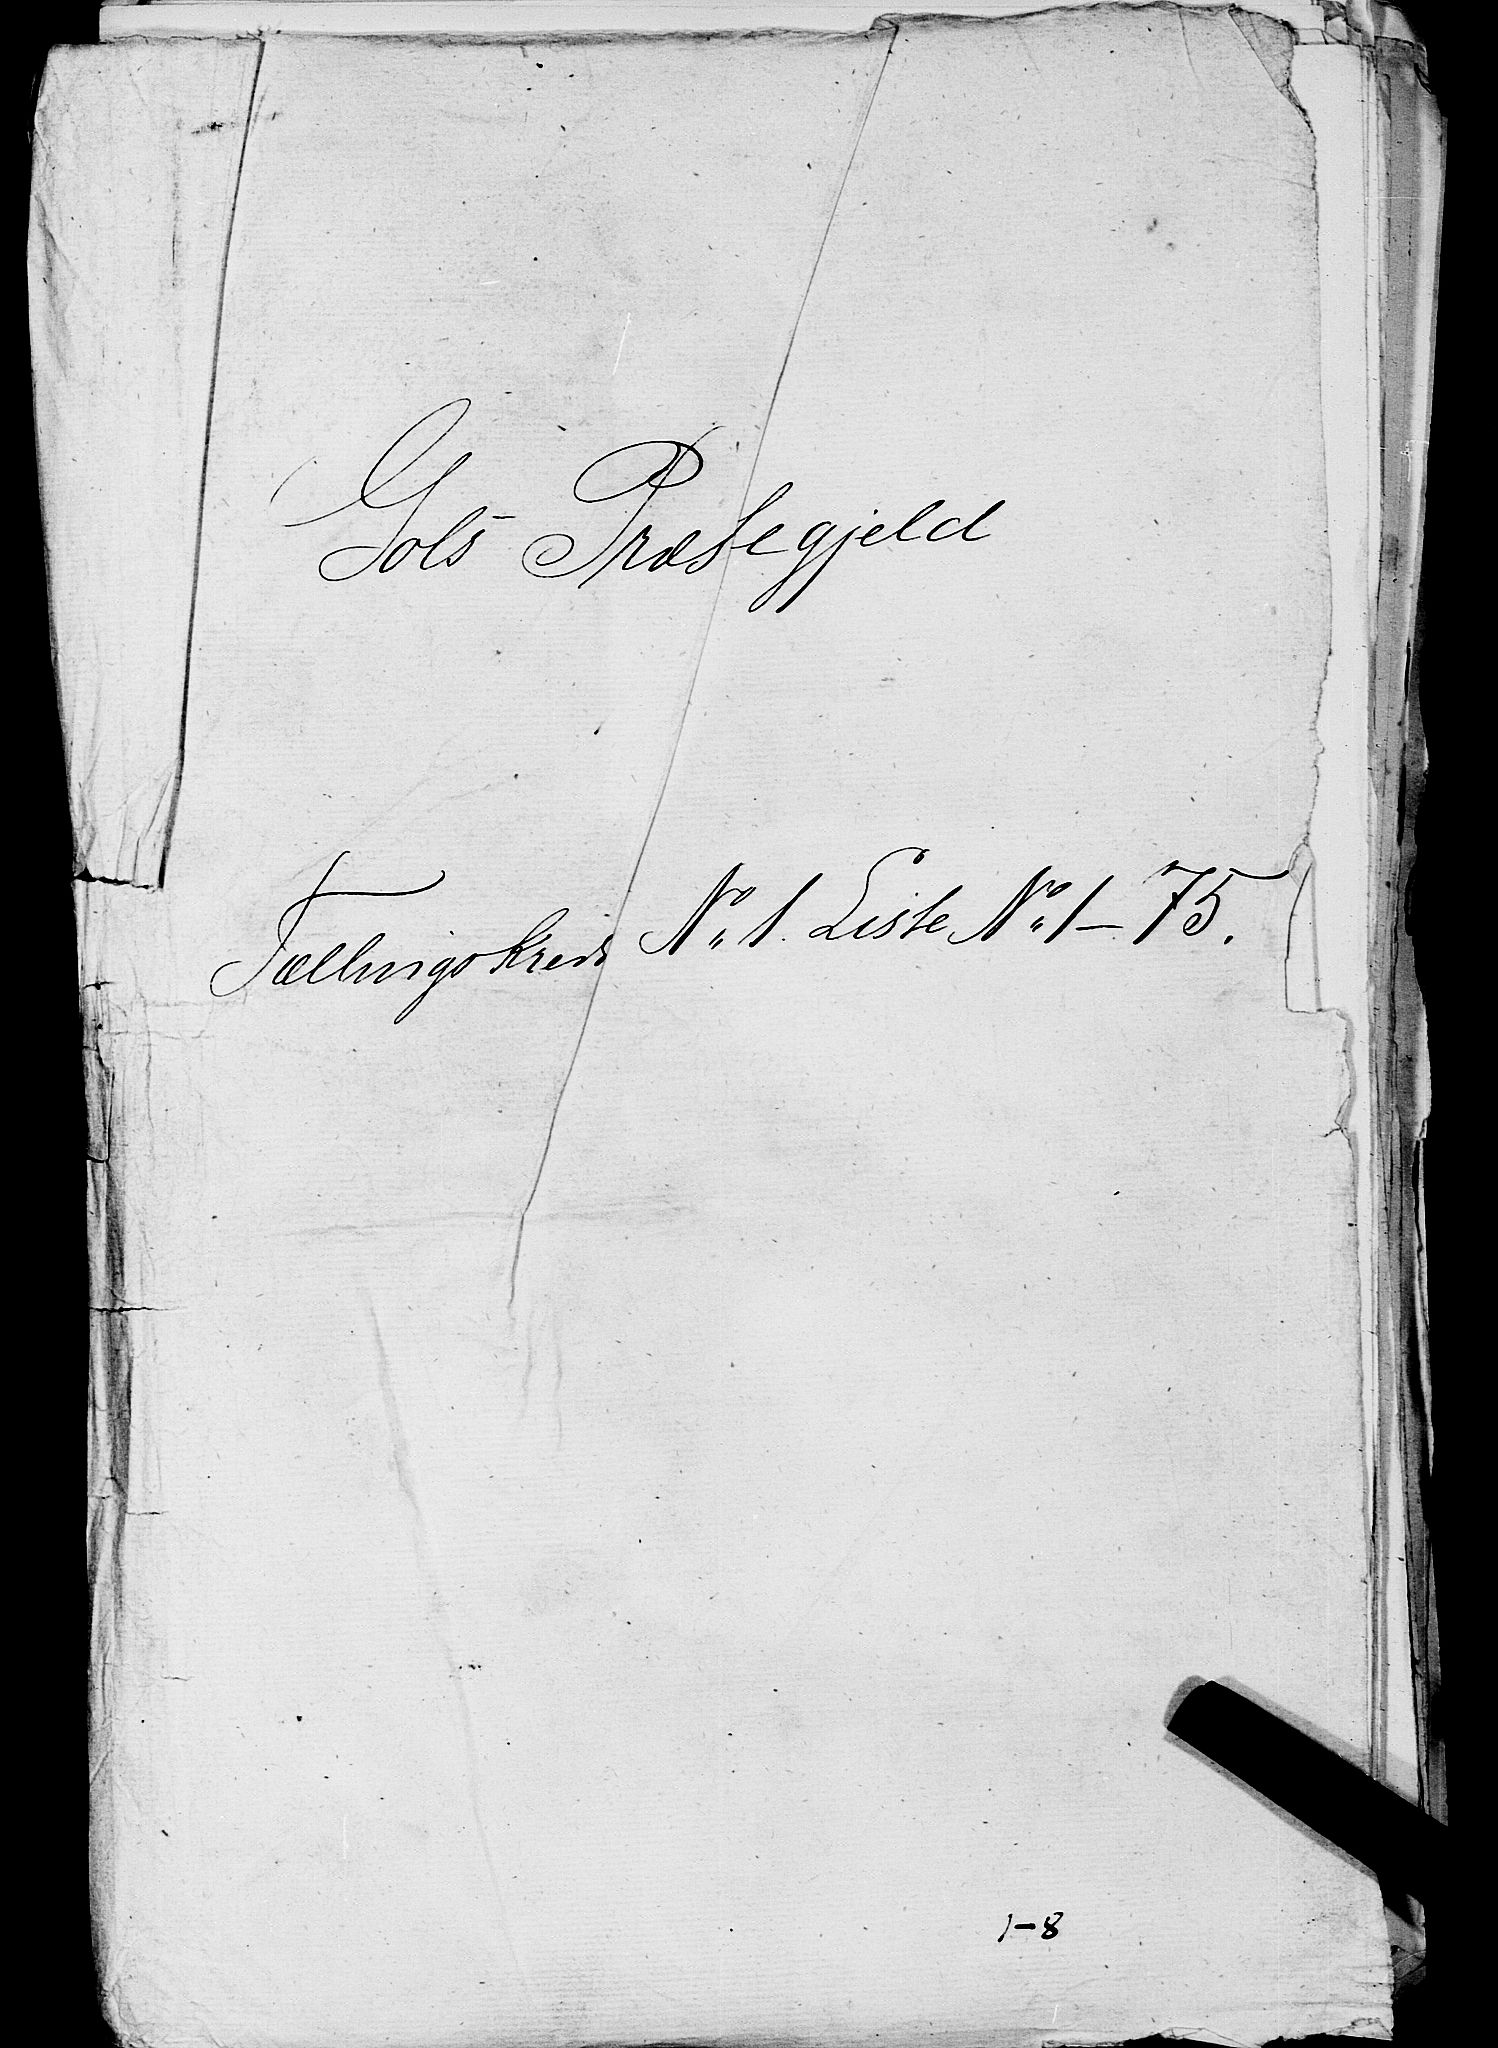 Gols Præstegjeld
Tællingskreds No 1. Liste No 1–75.
1–8